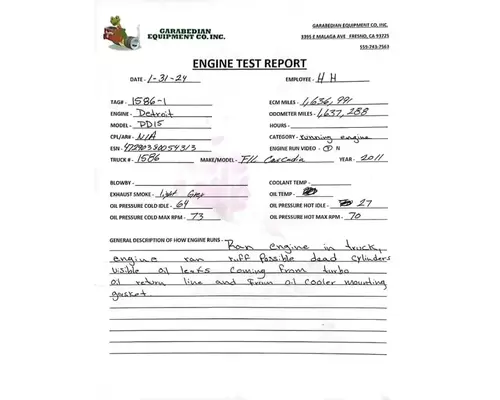 GARABEDIAN
EQUIPMENT CO. INC.
GARABEDIAN EQUIPMENT CO, INC.
3395 E MALAGA AVE FRESNO, CA 93725
559-743-7563
ENGINE TEST REPORT
DATE - 1-31-24 EMPLOYEE - H H
TAG# - 1586-1 ECM MILES - 1,636,991
ENGINE - Detroit ODOMETER MILES - 1,637,288
MODEL - DD15 HOURS -
CPL/AR# - N/A CATEGORY - running engine
ESN - ENGINE RUN VIDEO - Y N
TRUCK # - 1586 MAKE/MODEL - F/L Cascadia YEAR - 2011
BLOWBY - COOLANT TEMP -
EXHAUST SMOKE - light Grey OIL TEMP -
OIL PRESSURE COLD IDLE - 64 OIL PRESSURE HOT IDLE - 27
OIL PRESSURE COLD MAX RPM - 73 OIL PRESSURE HOT MAX RPM - 70
GENERAL DESCRIPTION OF HOW ENGINE RUNS - Ran engine in truck,
engine ran ruff Possible dead cylinders
visible oil leaks coming from turbo
oil return line and From oil cooler mounting
gasket.